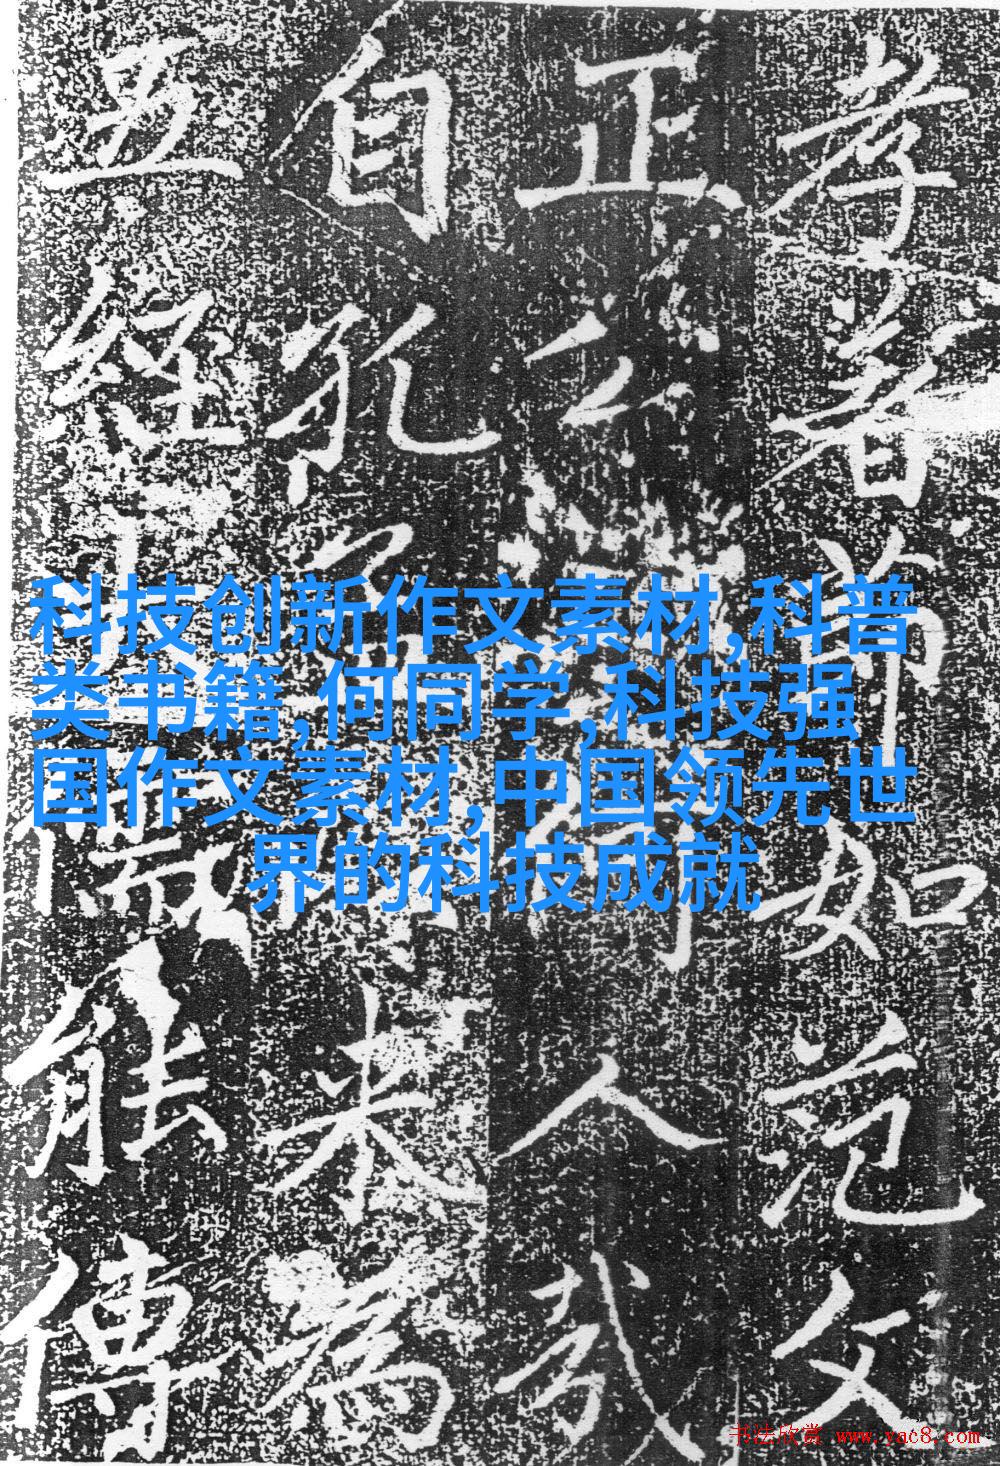 孝者節如范文
正公
人哉
自孔子
来為
五經
能傳
科技创新作文素材,科普
类书籍,何同学,科技强
国作文素材,中国领先世
界的科技成就
书法欣赏 www.yac8.com